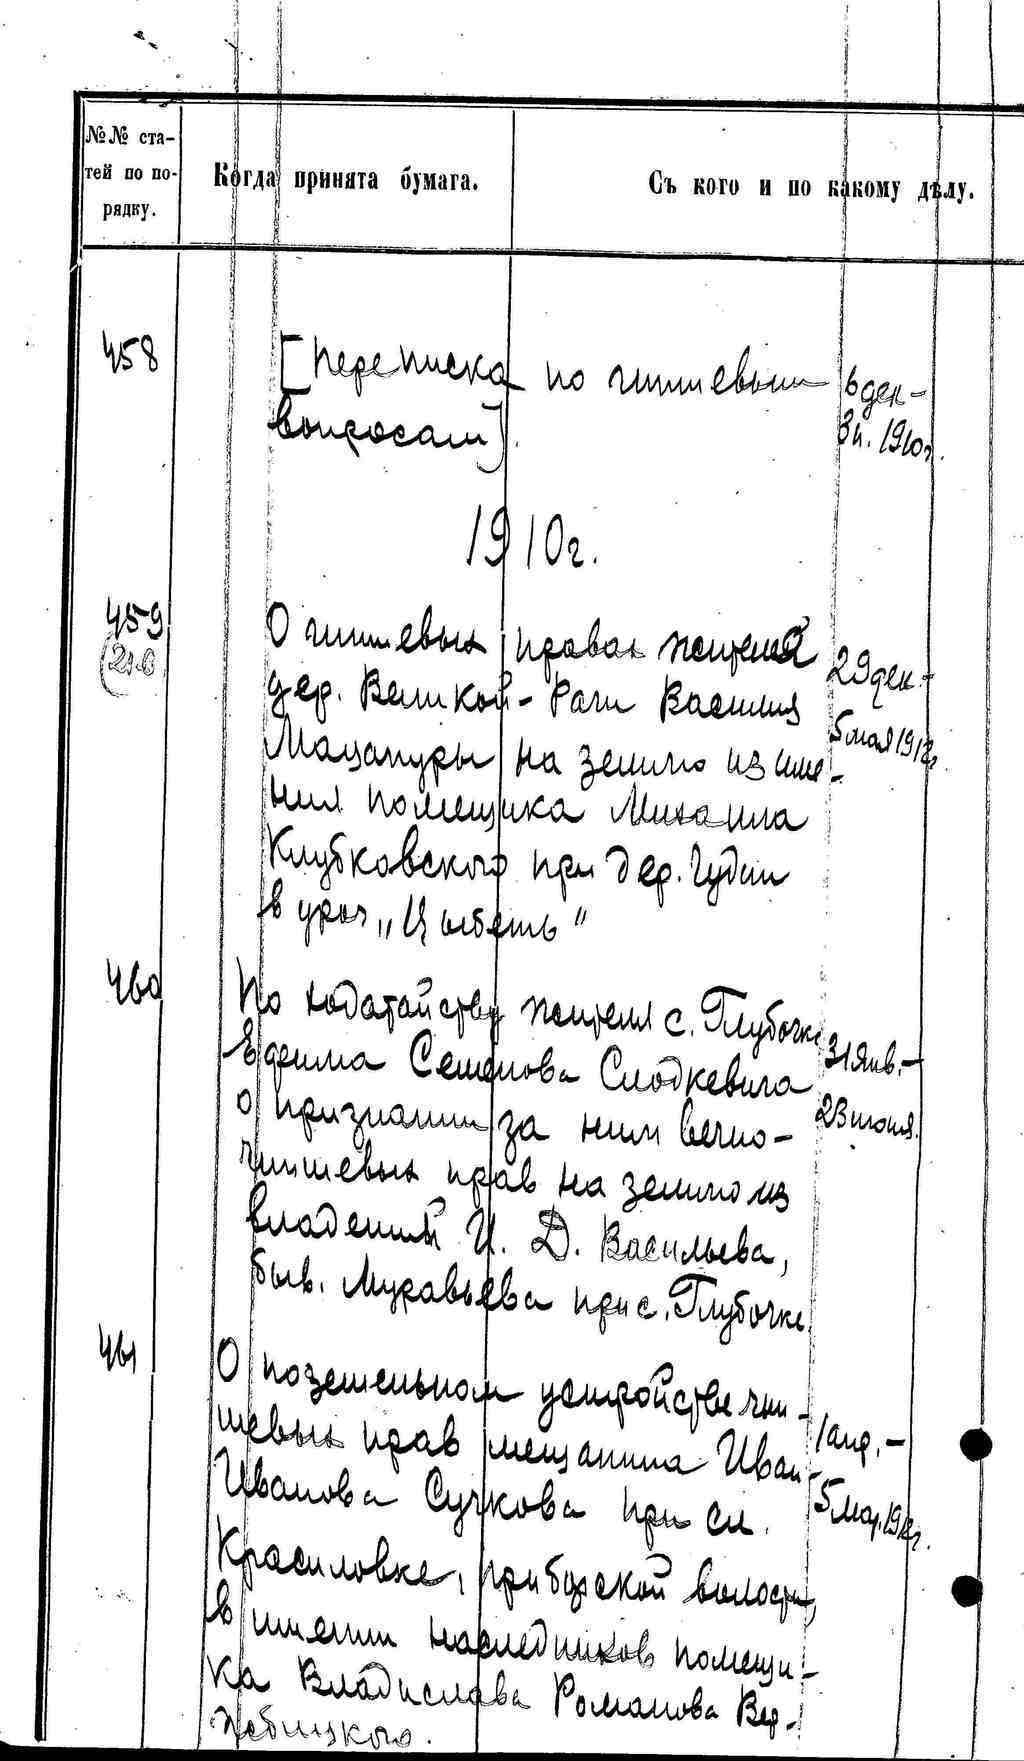 №№ ста-
тей по по-
рядку.
Когда принята бумага.
Съ кого и по какому дѣлу.
458
[Переписка по чиншевым
вопросам].
6 дек-
3 н. 1910г.
1910г.
459
О чиншевых правах жителя
дер. Великой-Рачи Василия
Мацапуры на землю из име-
ния помещика Михаила
Клубковского при дер. Гудим
в уроч „Цыбель"
29 дек.-
5 мая 1912г
460
По ходатайству жителя с. Глубочка
Ефима Семенова Слодкевича
о признании за ним вечно-
чиншевых прав на землю из
владений И. Д. Васильева,
быв. Муравьева при с. Глубочке
31 янв.-
23 июня.
461
О поземельном устройстве чин-
шевых прав мещанина Иван-
Иванова Сучкова при сл.
Красиловке, Приборской волости,
в имении наследников помещи-
ка Владислава Романова Вер-
жбицкого.
1 апр.-
5 мар. 1912г.